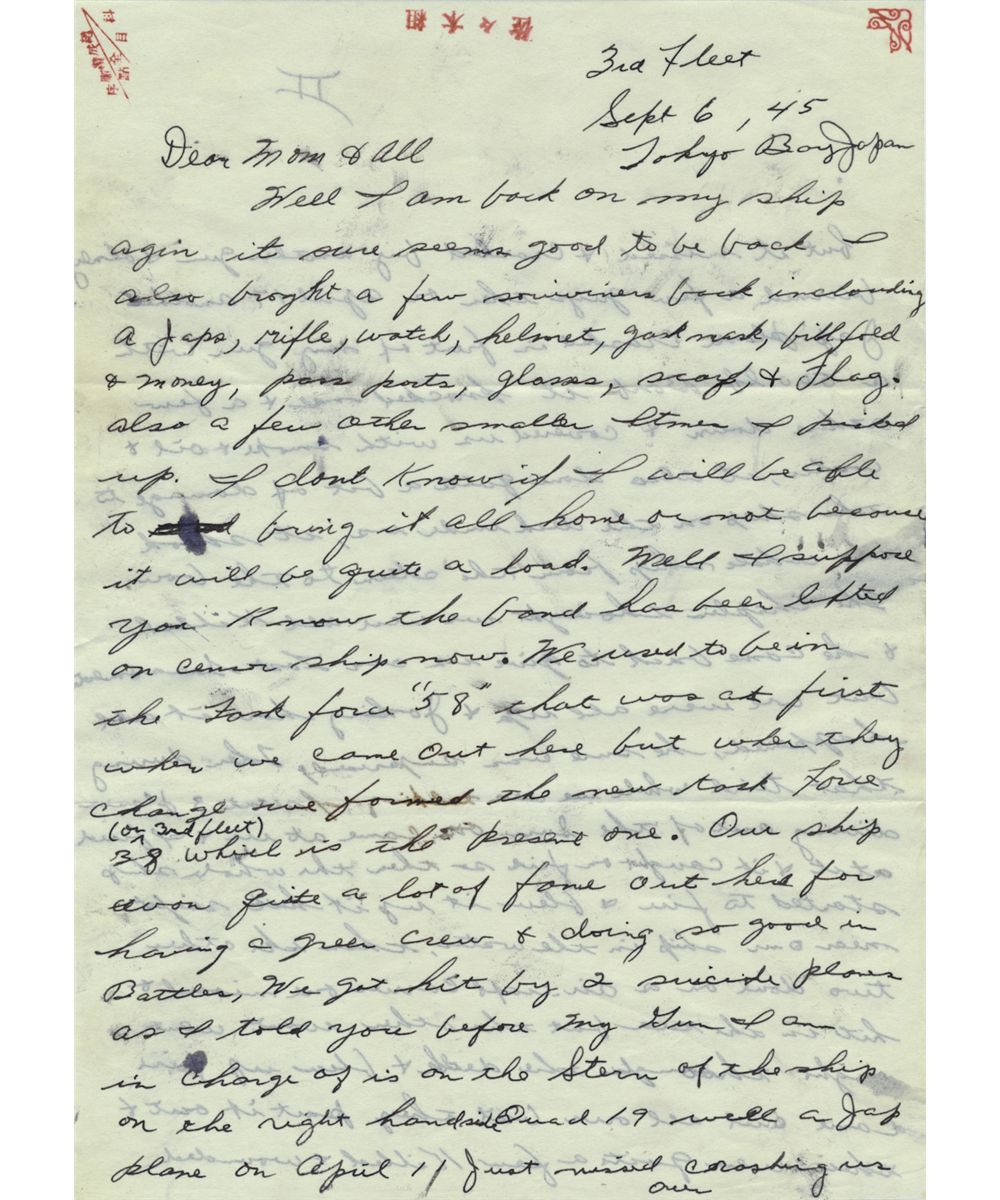 佐々木組
3rd Fleet
Sept 6, 45
Tokyo Bay Japan
Dear Mom & All
Well I am back on my ship
agin it sure seems good to be back I
also broght a few souviners back inclouding
a Japs, rifle, watch, helmet, gask mask, bill fold
& money, pass ports, glasses, scarf, & Flag.
also a few other smaller Itmes I picked
up. I dont Know if I will be able
to bring it all home or not because
it will be quite a load. Well I suppose
you Know the band has been lifted
on censor ship now. We used to be in
the Task force "58" that was at first
when we came out here but when they
change we formed the new task Force
(or 3rd fleet)
38 which is the present one. Our ship
won quite a lot of fame out here for
having a green crew & doing so good in
Battles, We got hit by 2 suicide planes
as I told you before My Gun I am
in charge of is on the Stern of the ship
on the right hand side Quad 19 well a Jap
plane on April 11 Just missed crashing us
our